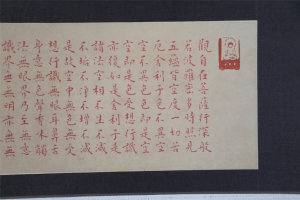 觀自在菩薩行深般
若波羅密多時照見
五蘊皆空度一切苦
厄舍利子色不異空
空不異色色即是空
空即是色受想行識
亦復如是舍利子是
諸法空相不生不滅
不垢不淨不增不減
是故空中無色無受
想行識無眼耳鼻舌
身意無色聲香味觸
法無眼界乃至無意
識界無無明亦無無